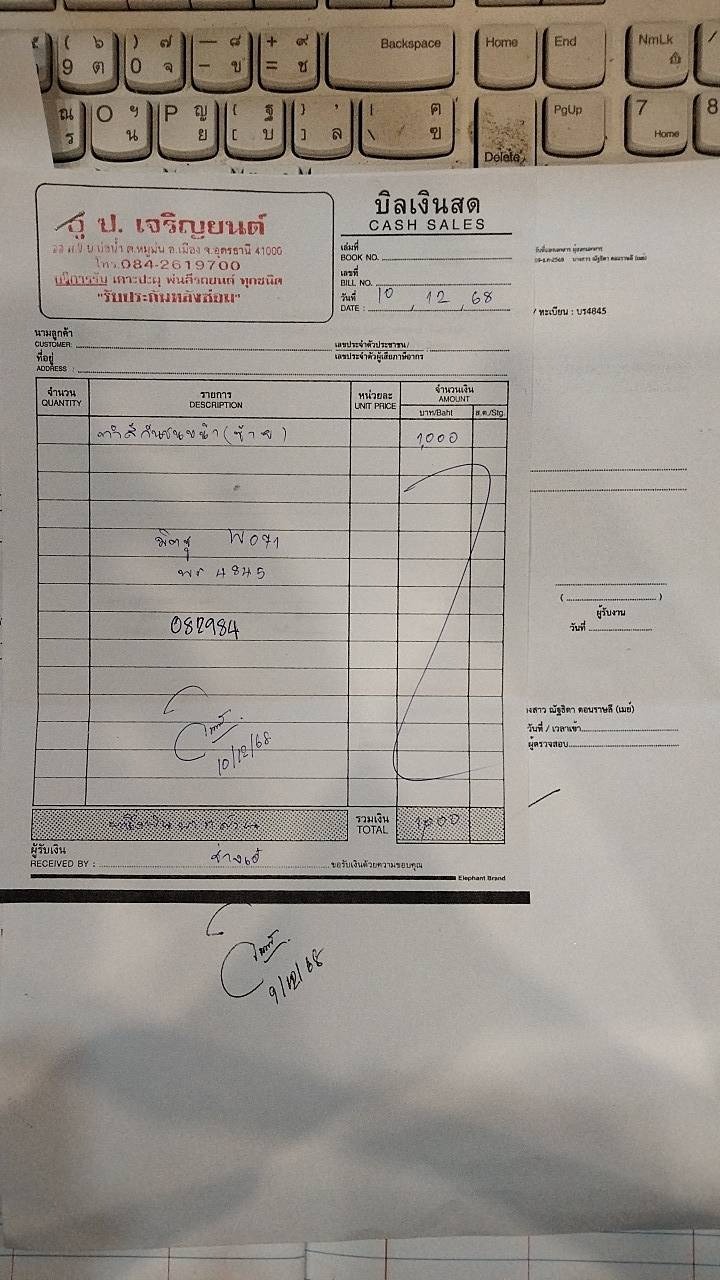 Backspace
Home
End
NmLk
PgUp
7
Home
8
Delete
อู่ ป. เจริญยนต์
อ.เมือง จ.อุดรธานี 41000
โทร.084-2619700
บริการรับ เคาะปะผุ พ่นสีรถยนต์ ทุกชนิด
"รับประกันหลังซ่อม"
บิลเงินสด
CASH SALES
เล่มที่
BOOK NO.
เลขที่
BILL NO.
วันที่
DATE : 10, 12, 68
นามลูกค้า
CUSTOMER:
เลขประจำตัวประชาชน/
เลขประจำตัวผู้เสียภาษีอากร
ที่อยู่
ADDRESS :
จำนวน
QUANTITY
รายการ
DESCRIPTION
หน่วยละ
UNIT PRICE
จำนวนเงิน
AMOUNT
บาท/Baht
ส.ต./Stg.
ทำสีกันชนหน้า (ซ้าย) 1,000
4845
082984
10/12/68
หนึ่งพันบาทถ้วน
รวมเงิน
TOTAL
1,000
ผู้รับเงิน
RECEIVED BY :
ขอรับเงินด้วยความขอบคุณ
Elephant Brand
9/12/68
/ ทะเบียน : บร4845
ผู้รับงาน
วันที่
งสาว ณัฐธิดา ดอนราษลี (เมย์)
วันที่ / เวลาเข้า
ผู้ตรวจสอบ